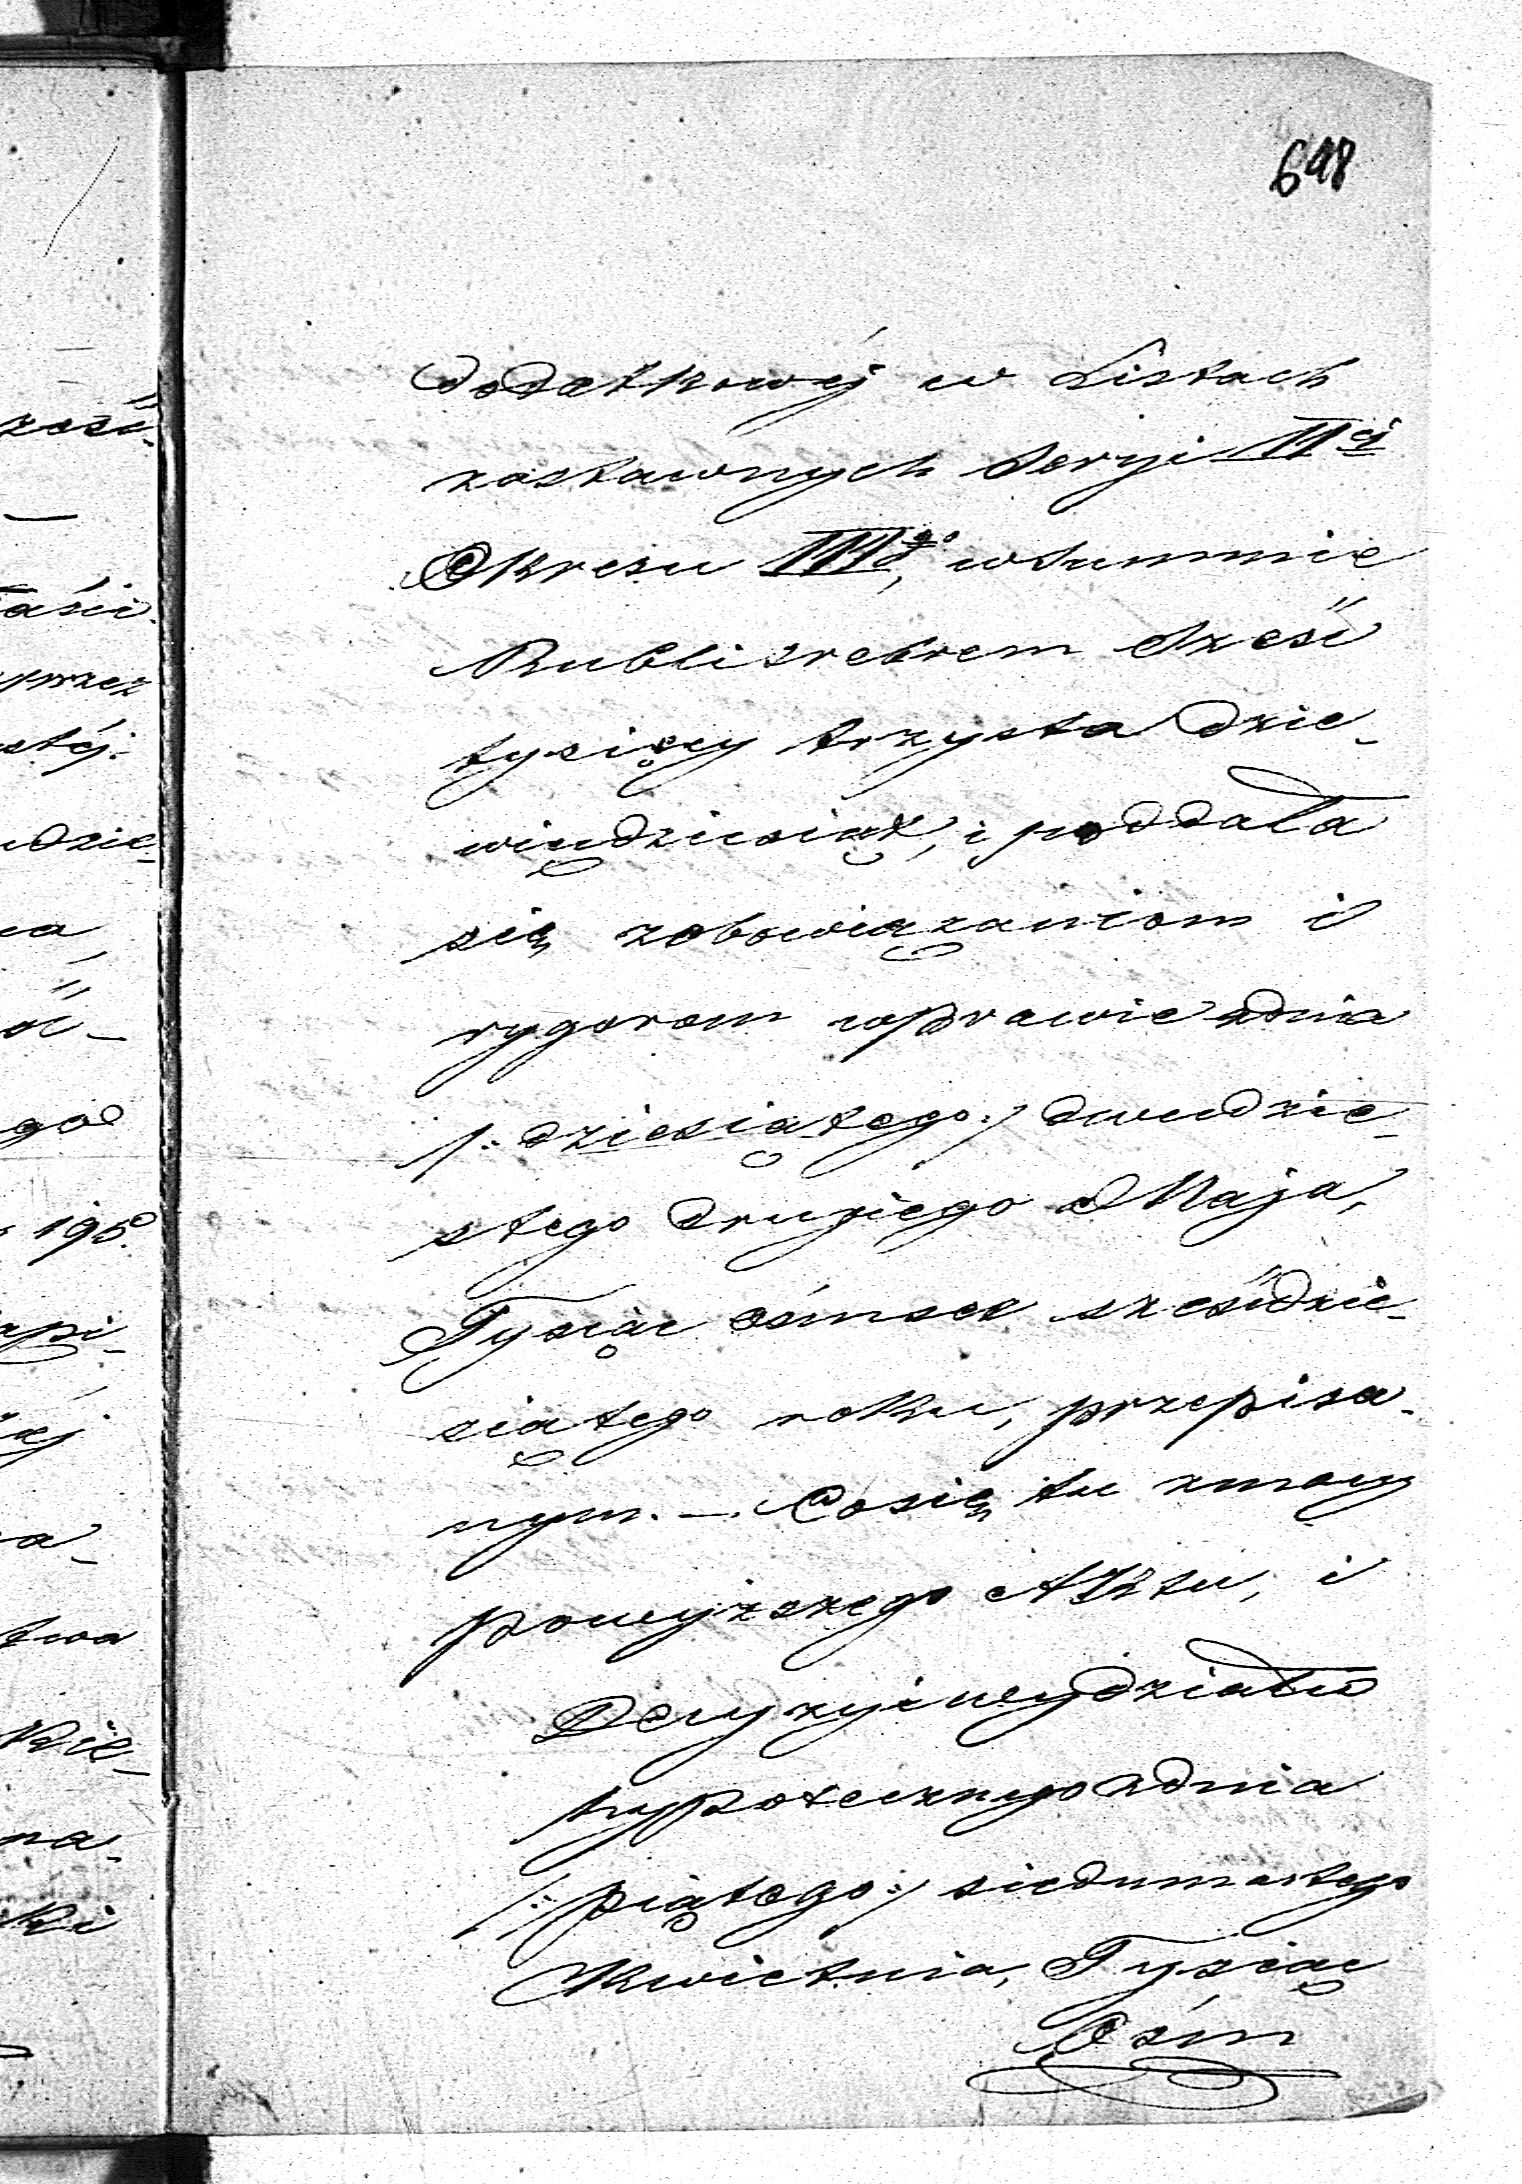 648
dodatkowéj w Listach
zastawnych Seryi II ej
Okresu III go, w summie
Rubli srebrem Sześć
tysięcy trzysta dzie-
więdziesiąt, i poddała
się zobowiązaniom i
rygorom w prawie z dnia
/: dziesiątego :/ dwudzie-
stego drugiego Maja,
Tysiąc ośmset sześćdzie-
siątego roku, przepisa-
nym. — Co się tu z mocy
powyższego Aktu, i
Decyzyi wydziału
hyppotecznego z dnia
/: piątego :/ siedmnastego
Kwietnia, Tysiąc
Ośm
zość
przez
stéj.
go
195.